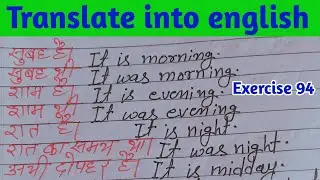 Translate into english
सुबह है। It is morning.
सुबह थी It was morning.
शाम है। It is evening.
Exercise 94
शाम थी It was evening
रात है। It is night.
रात का समय था। It was night.
अभी दोपहर है। It is midday.